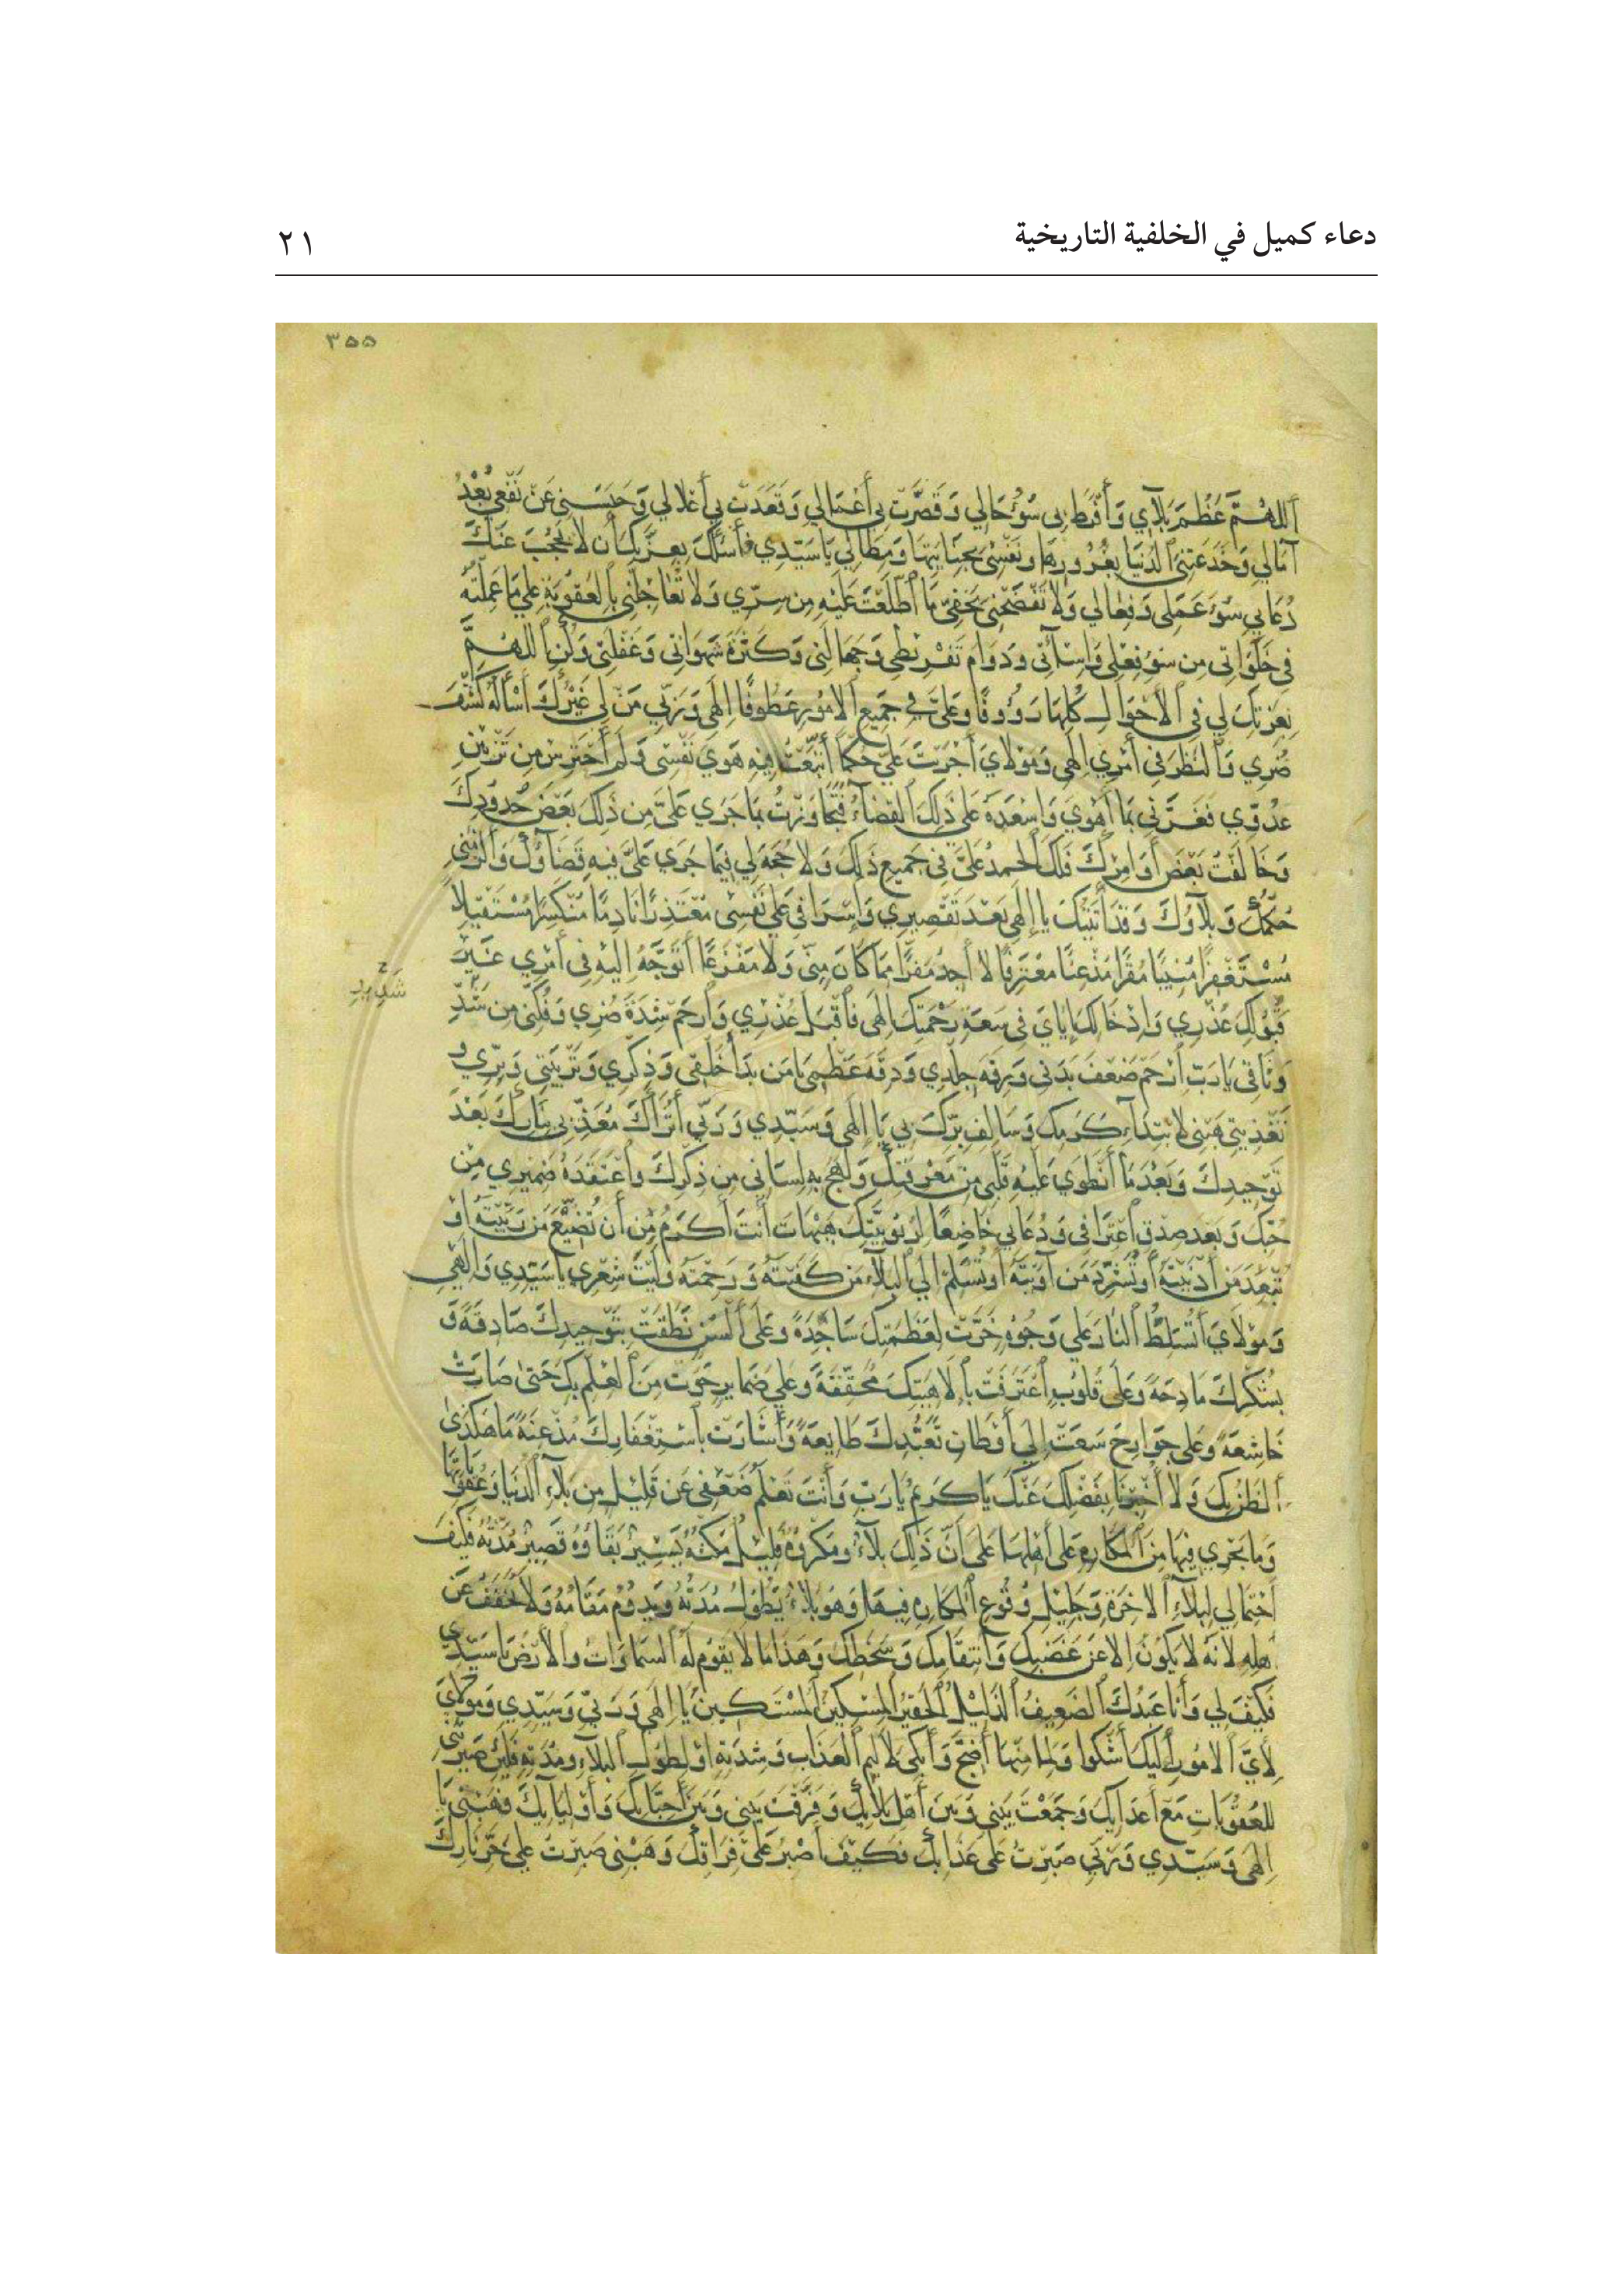 دعاء كميل في الخلفية التاريخية
٢١
٣٥٥
أَللهُمَّ عَظُمَ بَلآي وَأَفْرَطَ بي سُوْءُ حَالي وَقَصُرَتْ بي أَعْمَالي وَقَعَدَتْ بي أَغلالي وَحَبَسَني عَنْ نَفْعي بُعْدُ
آمَالي وَخَدَعَتْني الدُّنيَا بِغُرُورِهَا وَنَفْسِي بِجِنَايَتِهَا وَمِطَالي يَا سَيِّدي فَأَسْأَلُكَ بِعِزَّتِكَ أَن لاَ يَحْجُبَ عَنْكَ
دُعَايي سُوْءُ عَمَلي وَفِعَالي وَلاَ تَفْضَحْني بِخَفِيِّ مَا أطَّلَعْتَ عَلَيْهِ مِن سِرّي وَلاَ تُعَاجِلْني بِالعُقُوبَةِ عَلي مَا عَمِلْتُهُ
في خَلَوَاتي مِن سُوْءِ فِعْلي وَإِسَآئَتي وَدَوَامِ تَفْرِيطي وَجَهَالَتي وَكَثْرَةِ شَهَوَاتي وَغَفْلَتي وَكُنِ اللهُمَّ
بِعِزَّتِكَ لي في الأَحْوَالِ كُلِّهَا رَؤُوفًا وَعَلَيَّ في جَمِيعِ الأُمُورِ عَطُوفًا إِلَهي وَرَبّي مَنْ لي غَيْرُكَ أَسْأَلُهُ كَشْفَ
ضُرّي وَالنَّظَرَ في أَمْري إِلَهي وَمَوْلاَيَ أَجْرَيْتَ عَلَيَّ حُكْمًا أتَّبَعْتُ فِيهِ هَوَي نَفْسي وَلَم أَحْتَرِسْ مِن تَزْيِينِ
عَدُوّي فَغَرَّني بِمَا أَهْوَي وَأَسْعَدَهُ عَلي ذَلِكَ القَضَآءُ فَتَجَاوَزْتُ بِمَا جَرَي عَلَيَّ مِن ذَلِكَ بَعْضَ حُدُودِكَ
وَخَالَفْتُ بَعْضَ أَوَامِرِكَ فَلَكَ الحَمدُ عَلَيَّ في جَمِيعِ ذَلِكَ وَلاَ حُجَّةَ لي فِيمَا جَرَي عَلَيَّ فِيهِ قَضَآؤُكَ وَأَلْزَمَني
حُكْمُكَ وَبَلآؤُكَ وَقَدْ أَتَيْتُكَ يَا إِلَهي بَعْدَ تَقْصِيري وَإِسْرَافي عَلي نَفْسي مُعْتَذِرًا نَادِمًا مُنْكَسِرًا مُسْتَقِيلاً
مُسْتَغْفِرًا مُنِيبًا مُقِرًّا مُذْعِنًا مُعْتَرِفًا لاَ أَجِدُ مَفَرًّا مِمَّا كَانَ مِنّي وَلاَ مَفْزَعًا أَتَوَجَّهُ إِلَيْهِ في أَمْري غَيْرَ
قَبُولِكَ عُذْري وَإِدْخَالِكَ إِيَّايَ في سَعَةِ رَحْمَتِكَ إِلَهي فَاقْبَل عُذْري وَارْحَمْ شِدَّةَ ضُرّي وَفُكَّني مِن شَدِّ
شديد
وَثَاقي يَا رَبِّ ارْحَمْ ضَعْفَ بَدَني وَرِقَّةَ جِلْدي وَدِقَّةَ عَظْمي يَا مَن بَدَأَ خَلْقي وَذِكْري وَتَرْبِيَتي وَبِرّي وَ
تَغْذِيَتي هَبْني لاِبْتِدَآءِ كَرَمِكَ وَسَالِفِ بِرِّكَ بي يَا إِلَهي وَسَيِّدي وَرَبّي أَتُرَاكَ مُعَذِّبي بِنَارِكَ بَعْدَ
تَوْحِيدِكَ وَبَعْدَ مَا أنْطَوَي عَلَيْهِ قَلْبي مِن مَعْرِفَتِكَ وَلَهِجَ بِهِ لِسَاني مِن ذِكْرِكَ وَاعْتَقَدَهُ ضَمِيري مِنْ
حُبِّكَ وَبَعْدَ صِدْقِ اعْتِرَافي وَدُعَايي خَاضِعًا لِرُبُوبِيَّتِكَ هَيْهَاتَ أَنْتَ أَكْرَمُ مِنْ أَن تُضَيِّعَ مَن رَبَّيْتَهُ أَوْ
تُبَعِّدَ مَنْ أَدْنَيْتَهُ أَوْ تُشَرِّدَ مَنْ آوَيْتَهُ أَوْ تُسَلِّمَ إِلي البَلآءِ مَن كَفَيْتَهُ وَرَحِمْتَهُ وَلَيْتَ شِعْري يَا سَيِّدي وَإِلَهي
وَمَوْلاَيَ أَتُسَلِّطُ النَّارَ عَلي وُجُوهٍ خَرَّتْ لِعَظَمَتِكَ سَاجِدَةً وَعَلي أَلْسُنٍ نَطَقَتْ بِتَوْحِيدِكَ صَادِقَةً وَ
بِشُكْرِكَ مَادِحَةً وَعَلي قُلُوبٍ اعْتَرَفَتْ بِإِلاَهِيَّتِكَ مُحَقِّقَةً وَعَلي ضَمَايِرَ حَوَتْ مِنَ العِلْمِ بِكَ حَتّي صَارَتْ
خَاشِعَةً وَعَلي جَوَارِحَ سَعَتْ إِلي أَوْطَانِ تَعَبُّدِكَ طَايِعَةً وَأَشَارَتْ بِاسْتِغْفَارِكَ مُذْعِنَةً مَا هَكَذَي
الظَّنُّ بِكَ وَلاَ أُخْبِرْنَا بِفَضْلِكَ عَنْكَ يَا كَرِيمُ يَا رَبِّ وَأَنْتَ تَعْلَمُ ضَعْفي عَن قَلِيلٍ مِن بَلآءِ الدُّنْيَا وَعُقُوبَاتِهَا
وَمَا يَجْري فِيهَا مِنَ المَكَارِهِ عَلي أَهْلِهَا عَلي أَنَّ ذَلِكَ بَلآءٌ وَمَكْرُوهٌ قَلِيلٌ مَكْثُهُ يَسِيرٌ بَقَاؤُهُ قَصِيرٌ مُدَّتُهُ فَكَيْفَ
احْتِمَالي لِبَلآءِ الآخِرَةِ وَجَلِيلِ وُقُوعِ المَكَارِهِ فِيهَا وَهُوَ بَلآءٌ تَطُولُ مُدَّتُهُ وَيَدُومُ مَقَامُهُ وَلاَ يُخَفَّفُ عَن
أَهْلِهِ لأَنَّهُ لاَ يَكُونُ إِلاَّ عَنْ غَضَبِكَ وَانْتِقَامِكَ وَسَخَطِكَ وَهَذَا مَا لاَ يَقُومُ لَهُ السَّمَاوَاتُ وَالأَرْضُ يَا سَيِّدي
فَكَيْفَ لي وَأَنَا عَبْدُكَ الضَّعِيفُ الذَّلِيلُ الحَقِيرُ المِسْكِينُ المُسْتَكِينُ يَا إِلَهي وَرَبّي وَسَيِّدي وَمَوْلاَيَ
لأَيِّ الأُمُورِ إِلَيْكَ أَشْكُوا وَلِمَا مِنْهَا أَضِجُّ وَأَبْكي لأَلِيمِ العَذَابِ وَشِدَّتِهِ أَوْ لِطُولِ البَلآءِ وَمُدَّتِهِ فَلَئِن صَيَّرْتَني
لِلعُقُوبَاتِ مَعَ أَعْدَايِكَ وَجَمَعْتَ بَيْني وَبَيْنَ أَهْلِ بَلآيِكَ وَفَرَّقْتَ بَيْني وَبَيْنَ أَحِبَّايِكَ وَأَوْلِيَايِكَ فَهَبْني يَا
إِلَهي وَسَيِّدي وَرَبّي صَبَرْتُ عَلي عَذَابِكَ فَكَيْفَ أَصْبِرُ عَلي فِرَاقِكَ وَهَبْني صَبَرْتُ عَلي حَرِّ نَارِكَ